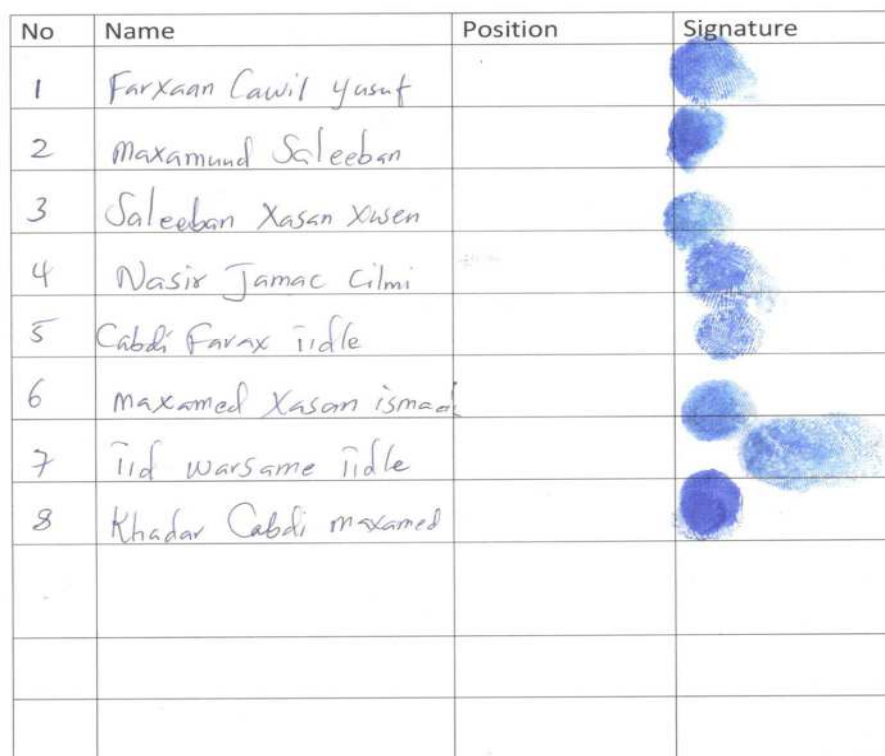 No Name Position Signature
1 Farxaan Cawil Yusuf
2 Maxamuud Saleeban
3 Saleeban Xasan Xusen
4 Nasir Jamac Cilmi
5 Cabdi Farax iidle
6 Maxamed Xasan ismail
7 iid warsame iidle
8 Khadar Cabdi maxamed